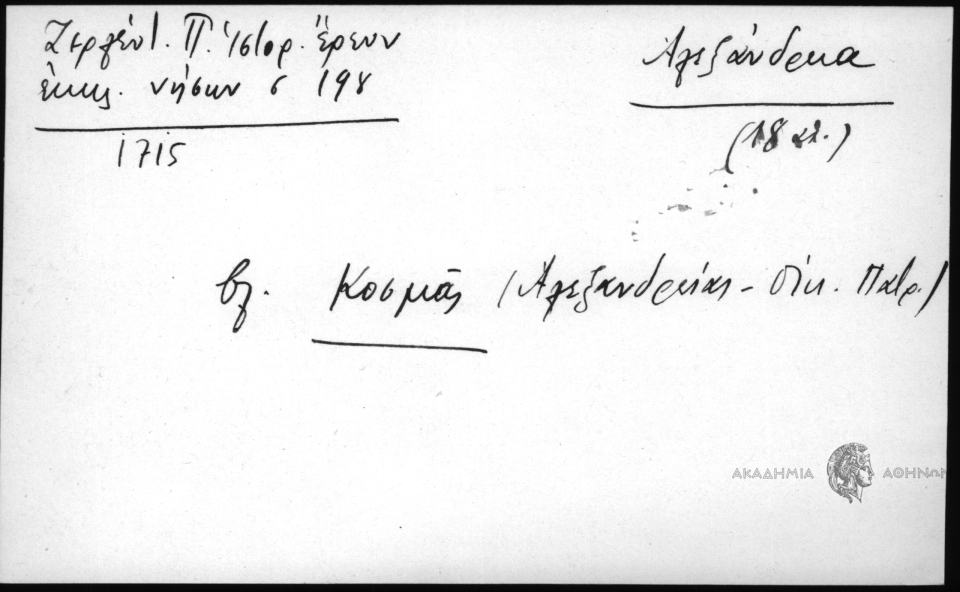 Ζερλέντ. Π. Ἱστορ. ἔρευν
ἐκκλ. νήσων σ 198
1715
Ἀλεξάνδρεια
(18 αι.)
βλ. Κοσμᾶς (Ἀλεξανδρείας - Οἰκ. Πατρ.)
ΑΚΑΔΗΜΙΑ ΑΘΗΝΩΝ